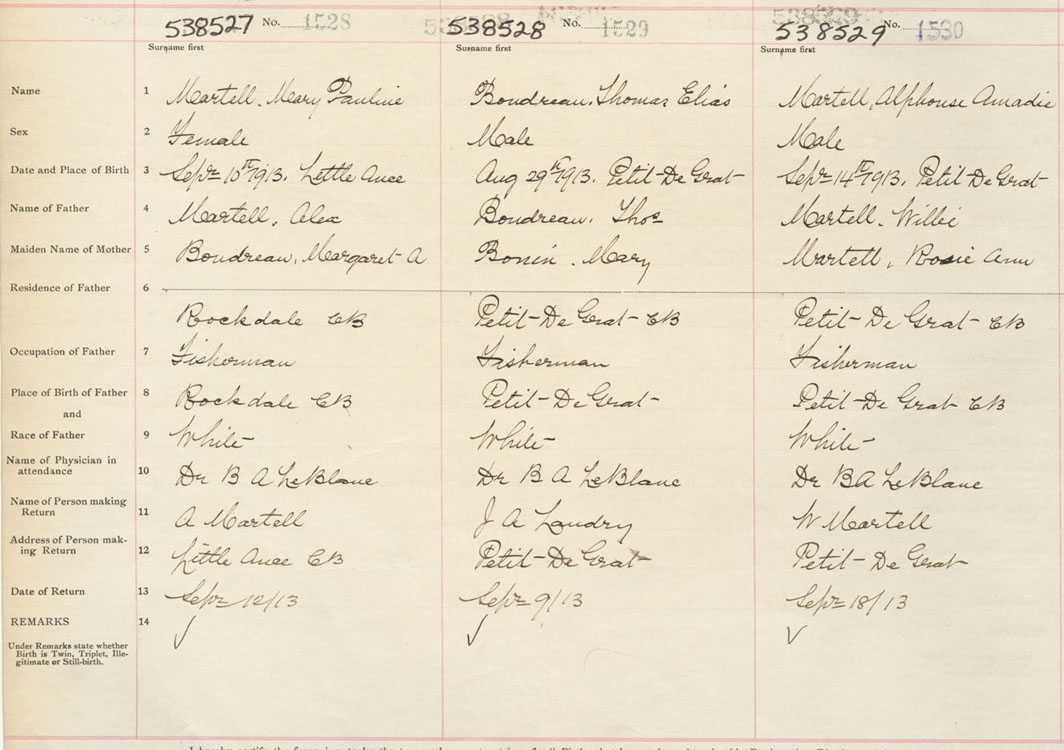 538527 No. 1528 538528 No. 1529 538529 No. 1530
Surname first Surname first Surname first
Name 1 Martell, Mary Pauline Boudreau, Thomas Elias Martell, Alphonse Amadie
Sex 2 Female Male Male
Date and Place of Birth 3 Sepr 10th 1913. Little Ance Aug 29th 1913. Petit-De Grat Sepr 14th 1913. Petit De Grat
Name of Father 4 Martell, Alex Boudreau, Thos Martell, Willie
Maiden Name of Mother 5 Boudreau, Margaret A Bonin, Mary Martell, Rosie Ann
Residence of Father 6
Rockdale CB Petit-De Grat CB Petit-De Grat CB
Occupation of Father 7 Fisherman Fisherman Fisherman
Place of Birth of Father 8 Rockdale CB Petit-De Grat Petit-De Grat CB
and
Race of Father 9 White White White
Name of Physician in
attendance 10 Dr B A LeBlanc Dr B A LeBlanc Dr BA LeBlanc
Name of Person making
Return 11 A Martell J A Landry W Martell
Address of Person mak-
ing Return 12 Little Ance CB Petit-De Grat Petit-De Grat
Date of Return 13 Sepr 12/13 Sepr 9/13 Sepr 18/13
REMARKS 14
Under Remarks state whether
Birth is Twin, Triplet, Ille-
gitimate or Still-birth.